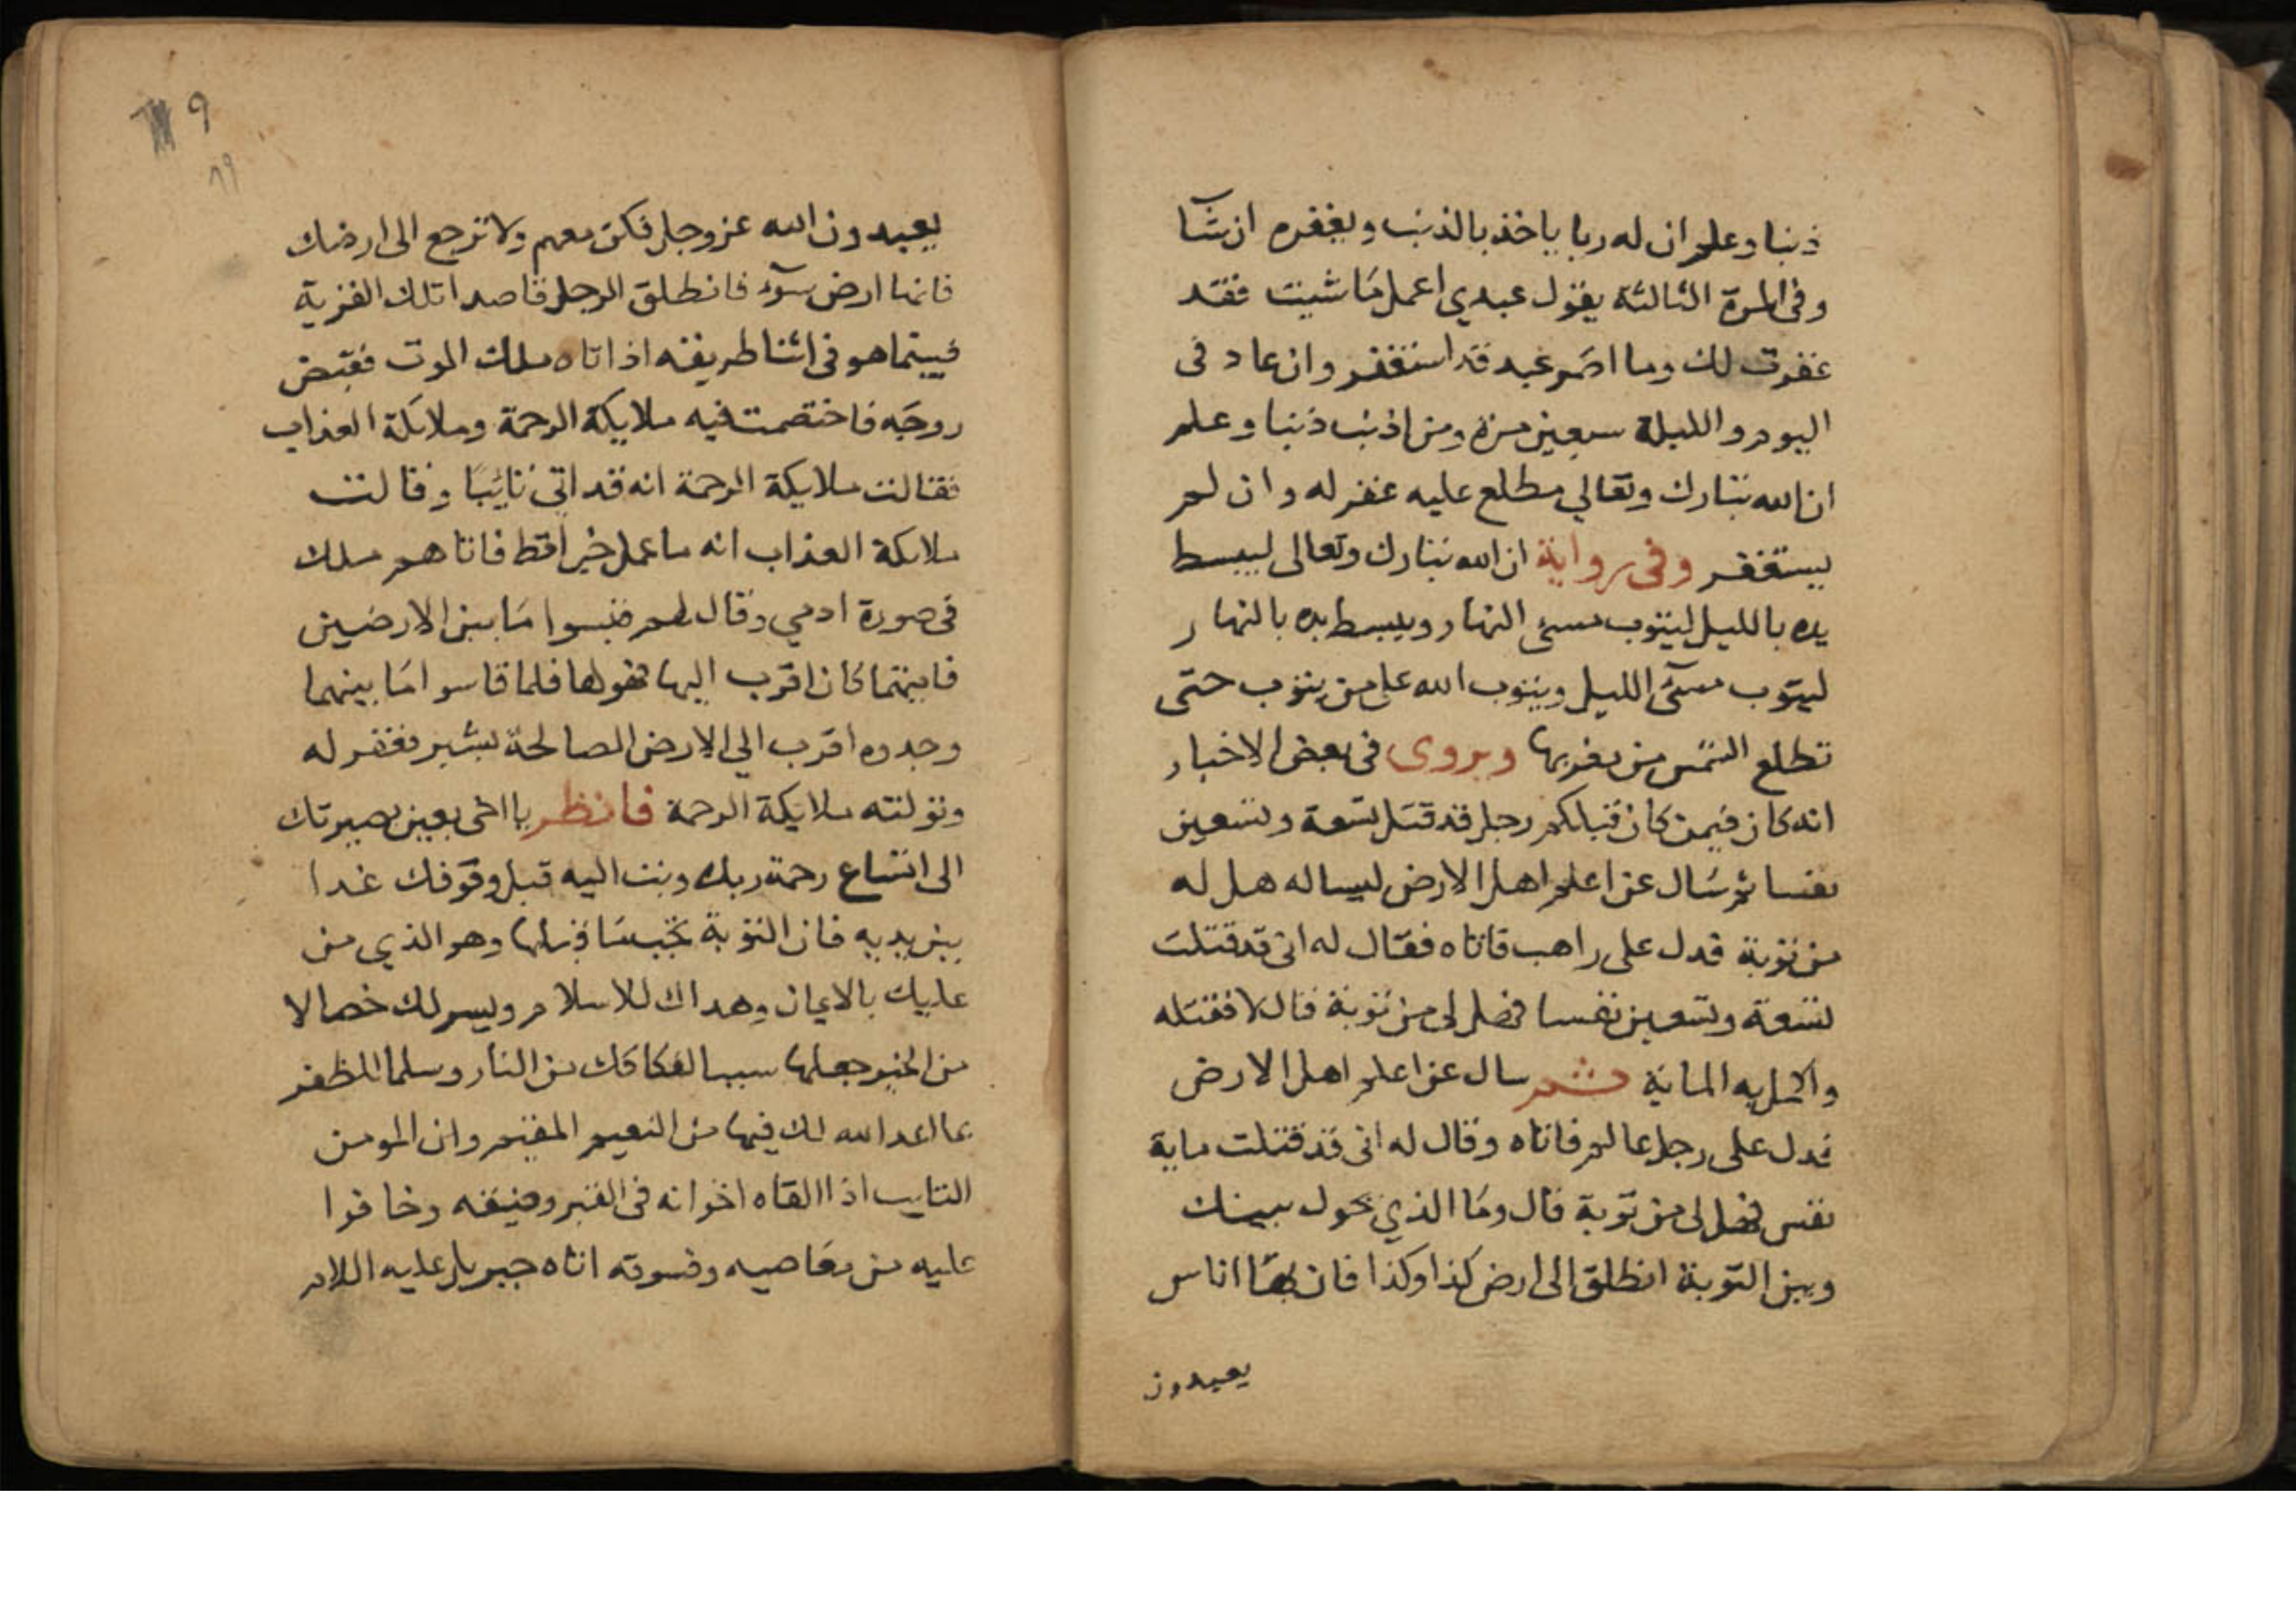 ذنبا وعلم ان له ربا ياخذ بالذنب ويغفره ان شآ
وفى المرة الثالثة يقول عبدي اعمل ما شيت فقد
غفرت لك وما اصر عبد قد استغفر وان عاد فى
اليوم والليلة سبعين مرة ومن اذنب ذنبا وعلم
ان الله تبارك وتعالي مطلع عليه غفر له وان لم
يستغفر وفى رواية ان الله تبارك وتعالى ليبسط
يده بالليل ليتوب مسئ النهار ويبسط يده بالنهار
ليتوب مسئ الليل ويتوب الله على من يتوب حتى
تطلع الشمس من مغربها ويروى فى بعض الاخبار
انه كان فيمن كان قبلكم رجل قد قتل تسعة وتسعين
نفسا ثم سال عن اعلم اهل الارض ليساله هل له
من توبة فدل على راهب فاتاه فقال له انى قد قتلت
تسعة وتسعين نفسا فهل لى من توبة قال لا فقتله
واكمل به الماية ثم سال عن اعلم اهل الارض
فدل على رجل عالم فاتاه وقال له انى قد قتلت ماية
نفس فهل لى من توبة قال وما الذي يحول بينك
وبين التوبة انطلق الى ارض كذا وكذا فان بها اناس
يعبدون
٨٩
يعبدون الله عز وجل فكن معهم ولا ترجع الى ارضك
فانها ارض سوء فانطلق الرجل قاصدا تلك القرية
فبينما هو فى اثنا طريقه اذ اتاه ملك الموت فقبض
روحه فاختصمت فيه ملايكة الرحمة وملائكة العذاب
فقالت ملايكة الرحمة انه قد اتى تائبا وقالت
ملائكة العذاب انه ما عمل خيرا قط فاتاهم ملك
فى صورة ادمي وقال لهم قيسوا ما بين الارضين
فاينهما كان اقرب اليها فهو لها فلما قاسوا ما بينهما
وجدوه اقرب الي الارض الصالحة بشبر فغفر له
وتولته ملايكة الرحمة فانظر يا اخى بعين بصيرتك
الى اتساع رحمة ربك وتب اليه قبل وقوفك غدا
بين يديه فان التوبة تجب ما قبلها وهو الذي من
عليك بالايمان وهداك للاسلام ويسر لك خصالا
من الخير جعلها سببا لفكاكك من النار وسلما للظفر
بما اعد الله لك فيها من النعيم المقيم وان المومن
التايب اذا القاه اخوانه فى القبر وضيقه وخافوا
عليه من معاصيه وفسوقه اتاه جبريل عليه اللام